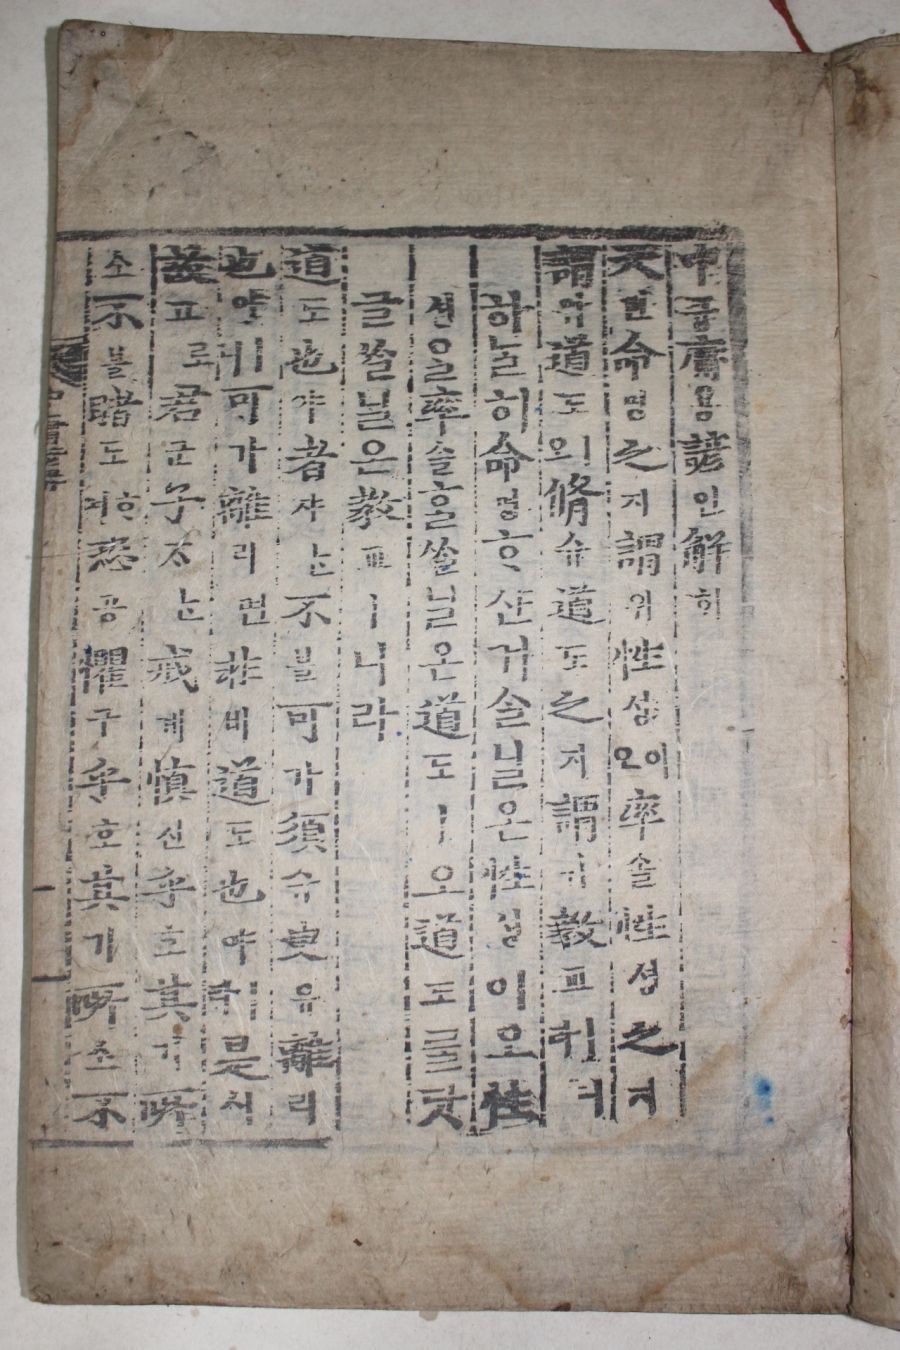 中듕庸용諺언解ᄒᆡ
天텬命명之지謂위性셩이오率솔性셩之지
謂위道도ㅣ오脩슈道도之지謂위敎교ㅣ니라
하ᄂᆞᆯ히命명ᄒᆞ산거ᄉᆞᆯ닐온性셩이오性
셩을率솔홀ᄊᆞᆯ닐온道도ㅣ오道도ᄅᆞᆯ닷
글ᄊᆞᆯ닐온敎교ㅣ니라
道도也야者쟈ᄂᆞᆫ不블可가須슈臾유離리
也야ㅣ니可가離리면非비道도也야ㅣ라是시
故고로君군子ᄌᆞᄂᆞᆫ戒계愼신乎호其기所
소不블睹도ᄒᆞ며恐공懼구乎호其기所소不